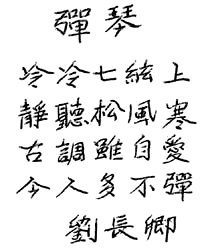 彈琴
冷冷七絃上
靜聽松風寒
古調雖自愛
今人多不彈
劉長卿